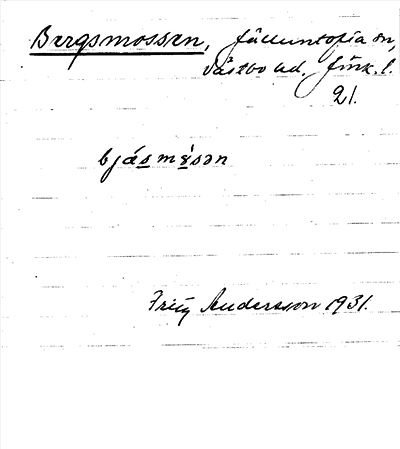 Bergsmossen, Jälluntofta sn,
Västbo hd. Jönk. l.
21.
bjásmýsən
Fritz Andersson 1931.